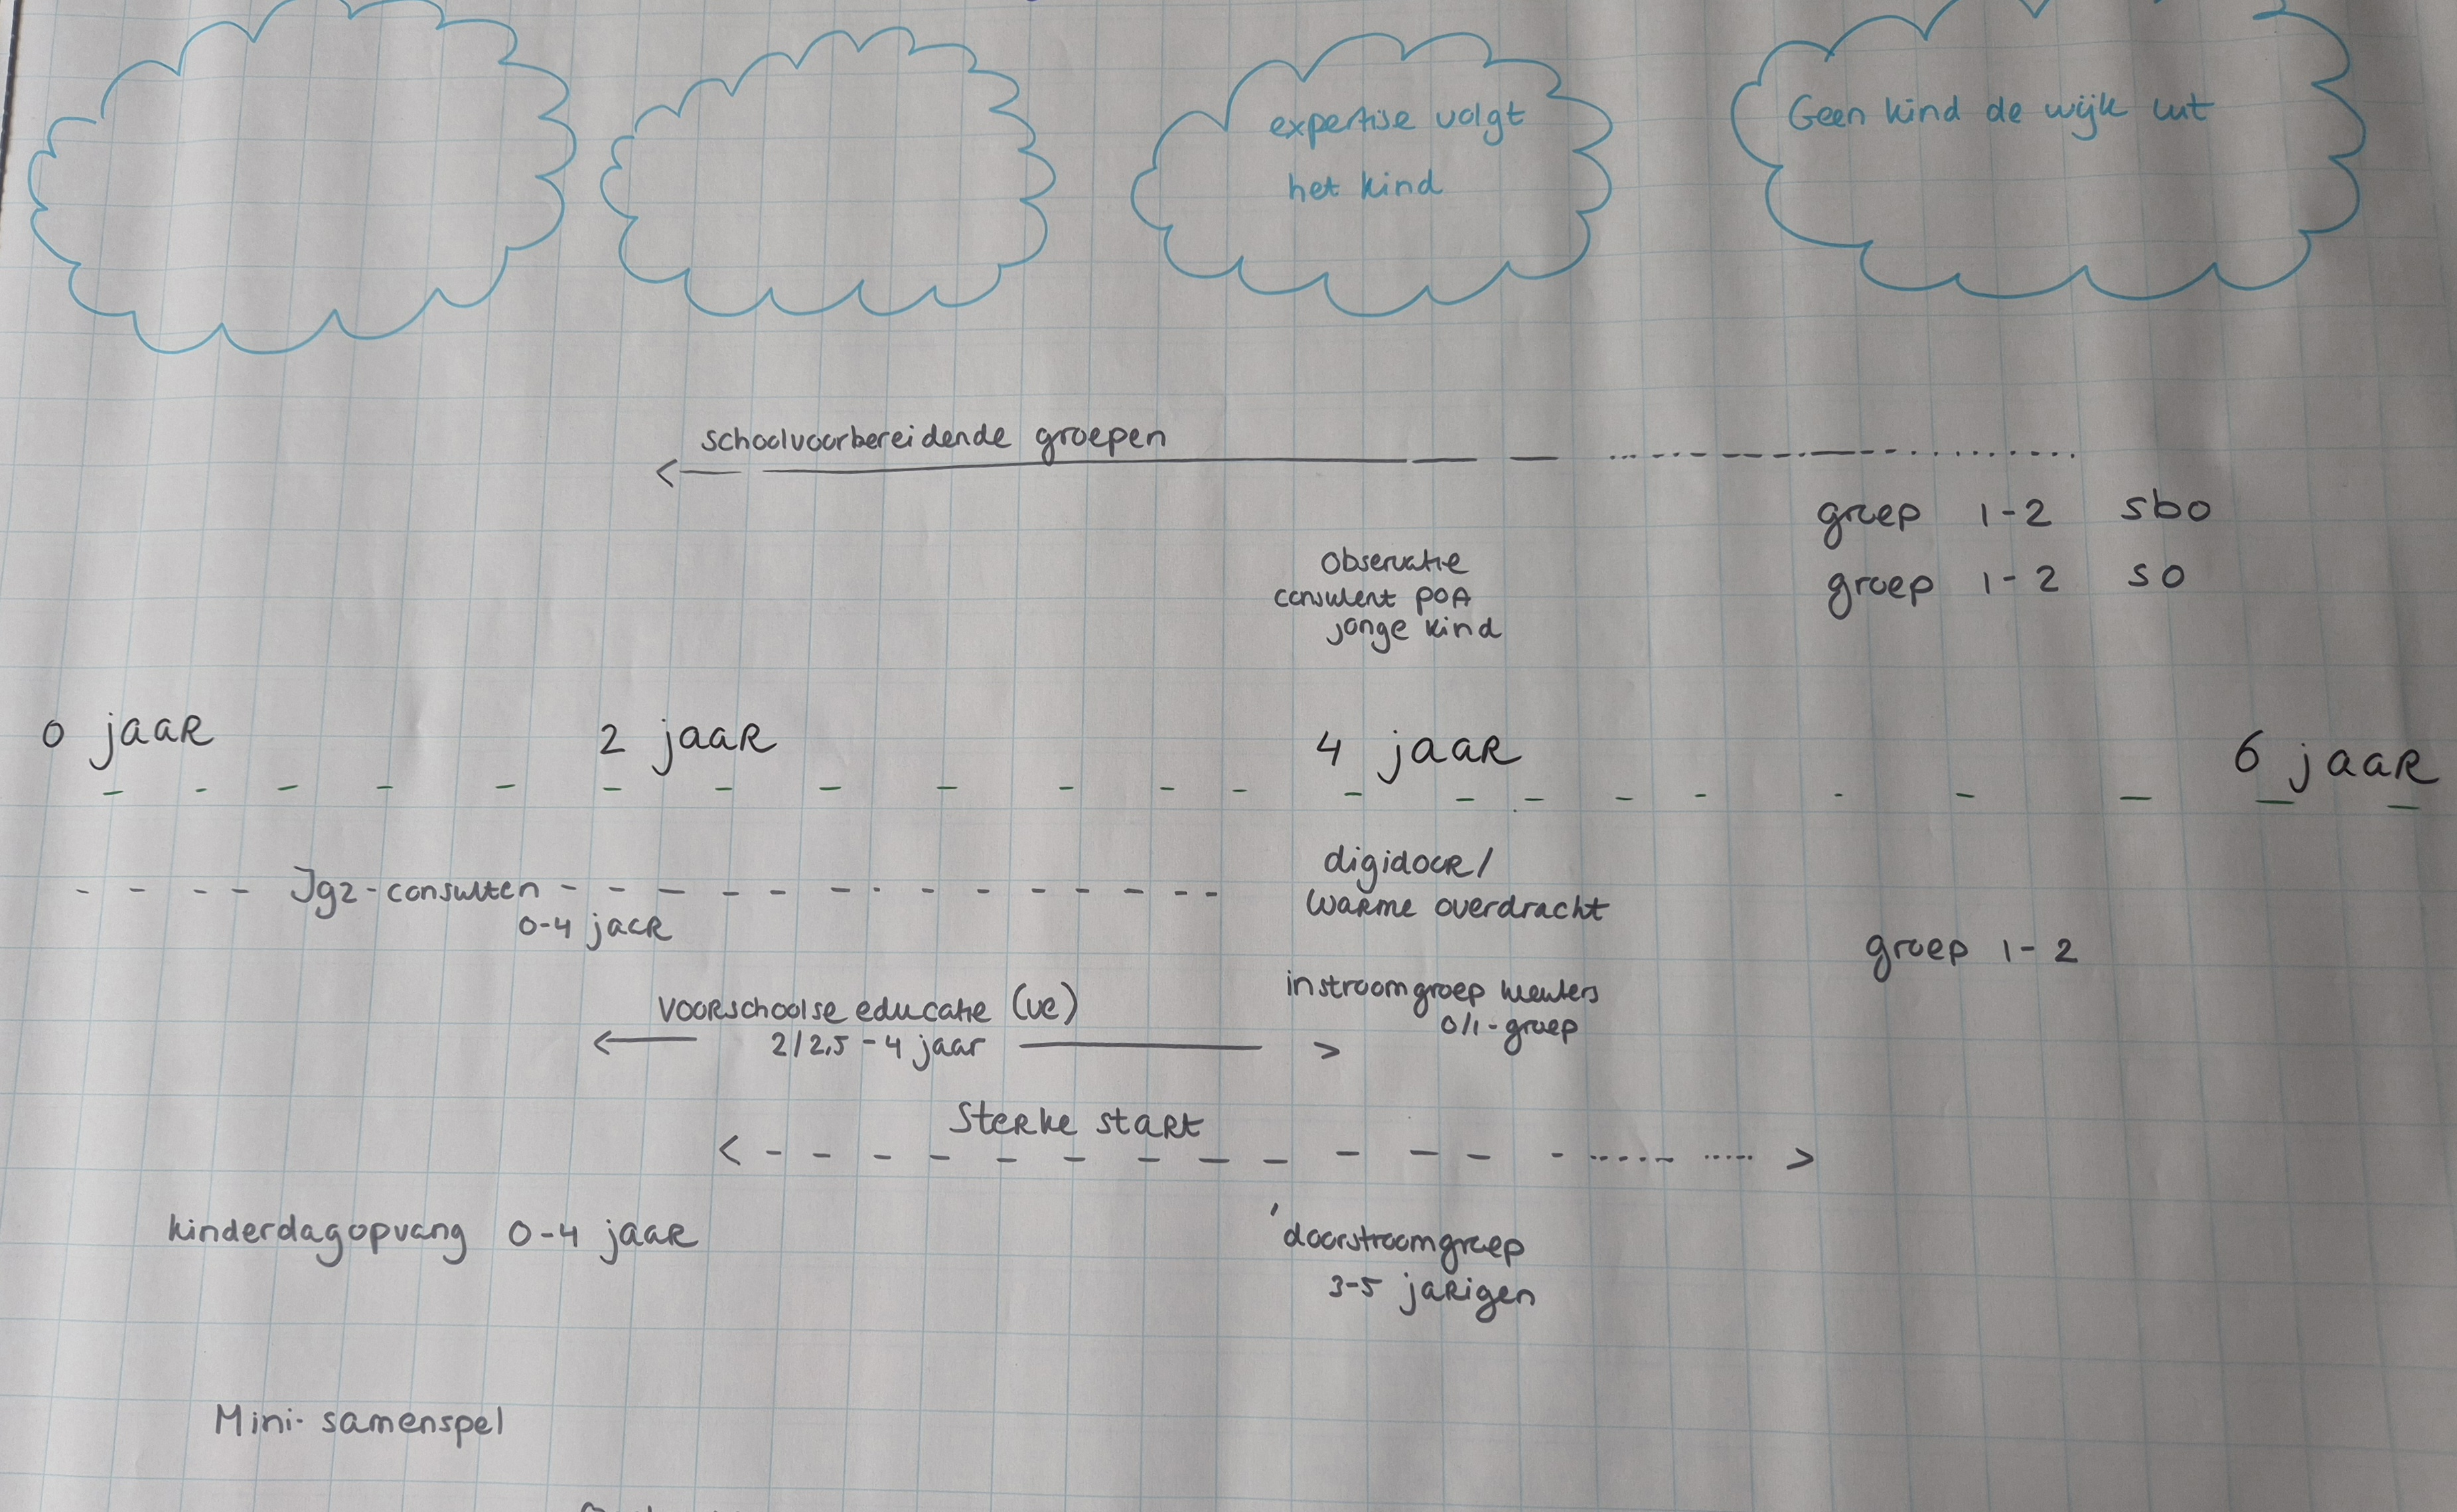 expertise volgt
het kind
Geen kind de wijk uit
schoolvoorbereidende groepen
groep 1-2 sbo
groep 1-2 so
Observatie
consulent POA
jonge kind
0 jaar
2 jaar
4 jaar
6 jaar
Jgz-consulten
0-4 jaar
digidoor/
warme overdracht
groep 1-2
Voorschoolse educatie (ve)
2/2,5-4 jaar
instroomgroep kleuters
0/1-groep
Sterke start
kinderdagopvang 0-4 jaar
'doorstroomgroep
3-5 jarigen
Mini-samenspel